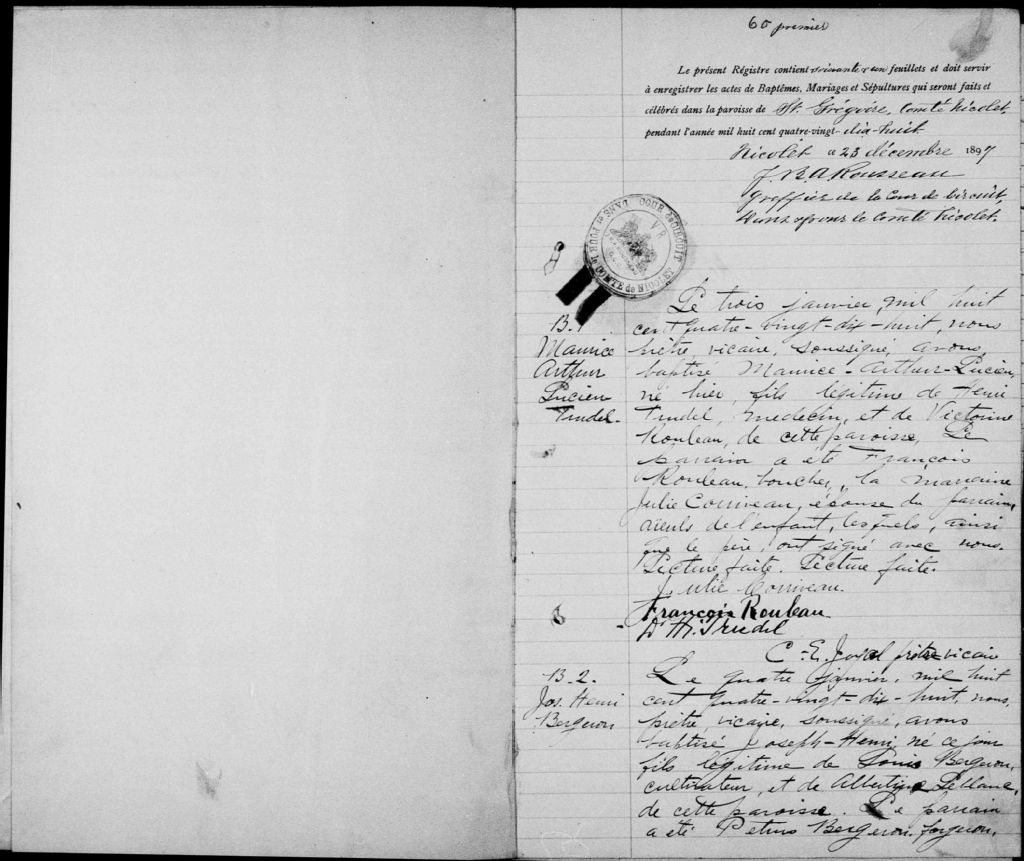 60 premier
Le présent Régistre contient soixante & un feuillets et doit servir
à enregistrer les actes de Baptêmes, Mariages et Sépultures qui seront faits et
célébrés dans la paroisse de St. Grégoire, Comté Nicolet,
pendant l'année mil huit cent quatre-vingt-dix-huit
Nicolet ce 23 décembre 1897
J. B. A Rousseau
Greffier de la Cour de Circuit,
Dans & pour le Comté Nicolet.
COUR de CIRCUIT DANS et POUR le COMTE de NICOLET
V R
B. 1
Maurice
Arthur
Lucien
Trudel.
Le trois janvier, mil huit
cent quatre-vingt-dix-huit, nous
prêtre, vicaire, soussigné, avons
baptisé Maurice-Arthur-Lucien,
né hier, fils légitime de Henri
Trudel, medecin, et de Victorine
Rouleau, de cette paroisse. Le
parrain a été François
Rouleau, boucher, la marraine
Julie Corriveau, épouse du parrain,
aïeuls de l'enfant, lesquels, ainsi
que le père, ont signé avec nous.
Lecture faite. Lecture faite.
Julie Corriveau.
François Rouleau
Dr H. Trudel
C.-E. prêtre vicaire
B. 2.
Jos. Henri
Bergeron
Le quatre janvier, mil huit
cent quatre-vingt-dix-huit, nous,
prêtre, vicaire, soussigné, avons
baptisé Joseph-Henri, né ce jour
fils légitime de Louis Bergeron,
cultivateur, et de Albertine Leblanc,
de cette paroisse. Le parrain
a été Petrus Bergeron, forgeron,